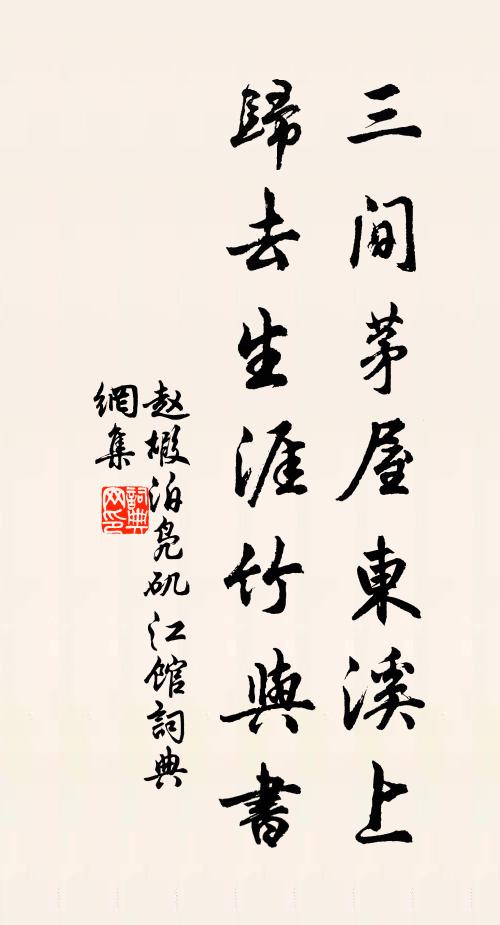 三间茅屋東溪上
歸去生涯竹與書
赵嘏泊凫矶江馆詞典
網集
詞典
网印